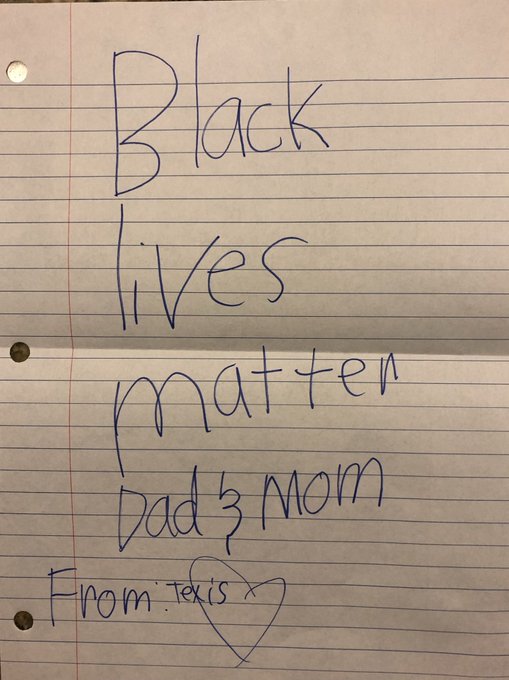 Black
lives
matter
Dad & Mom
From: Texis